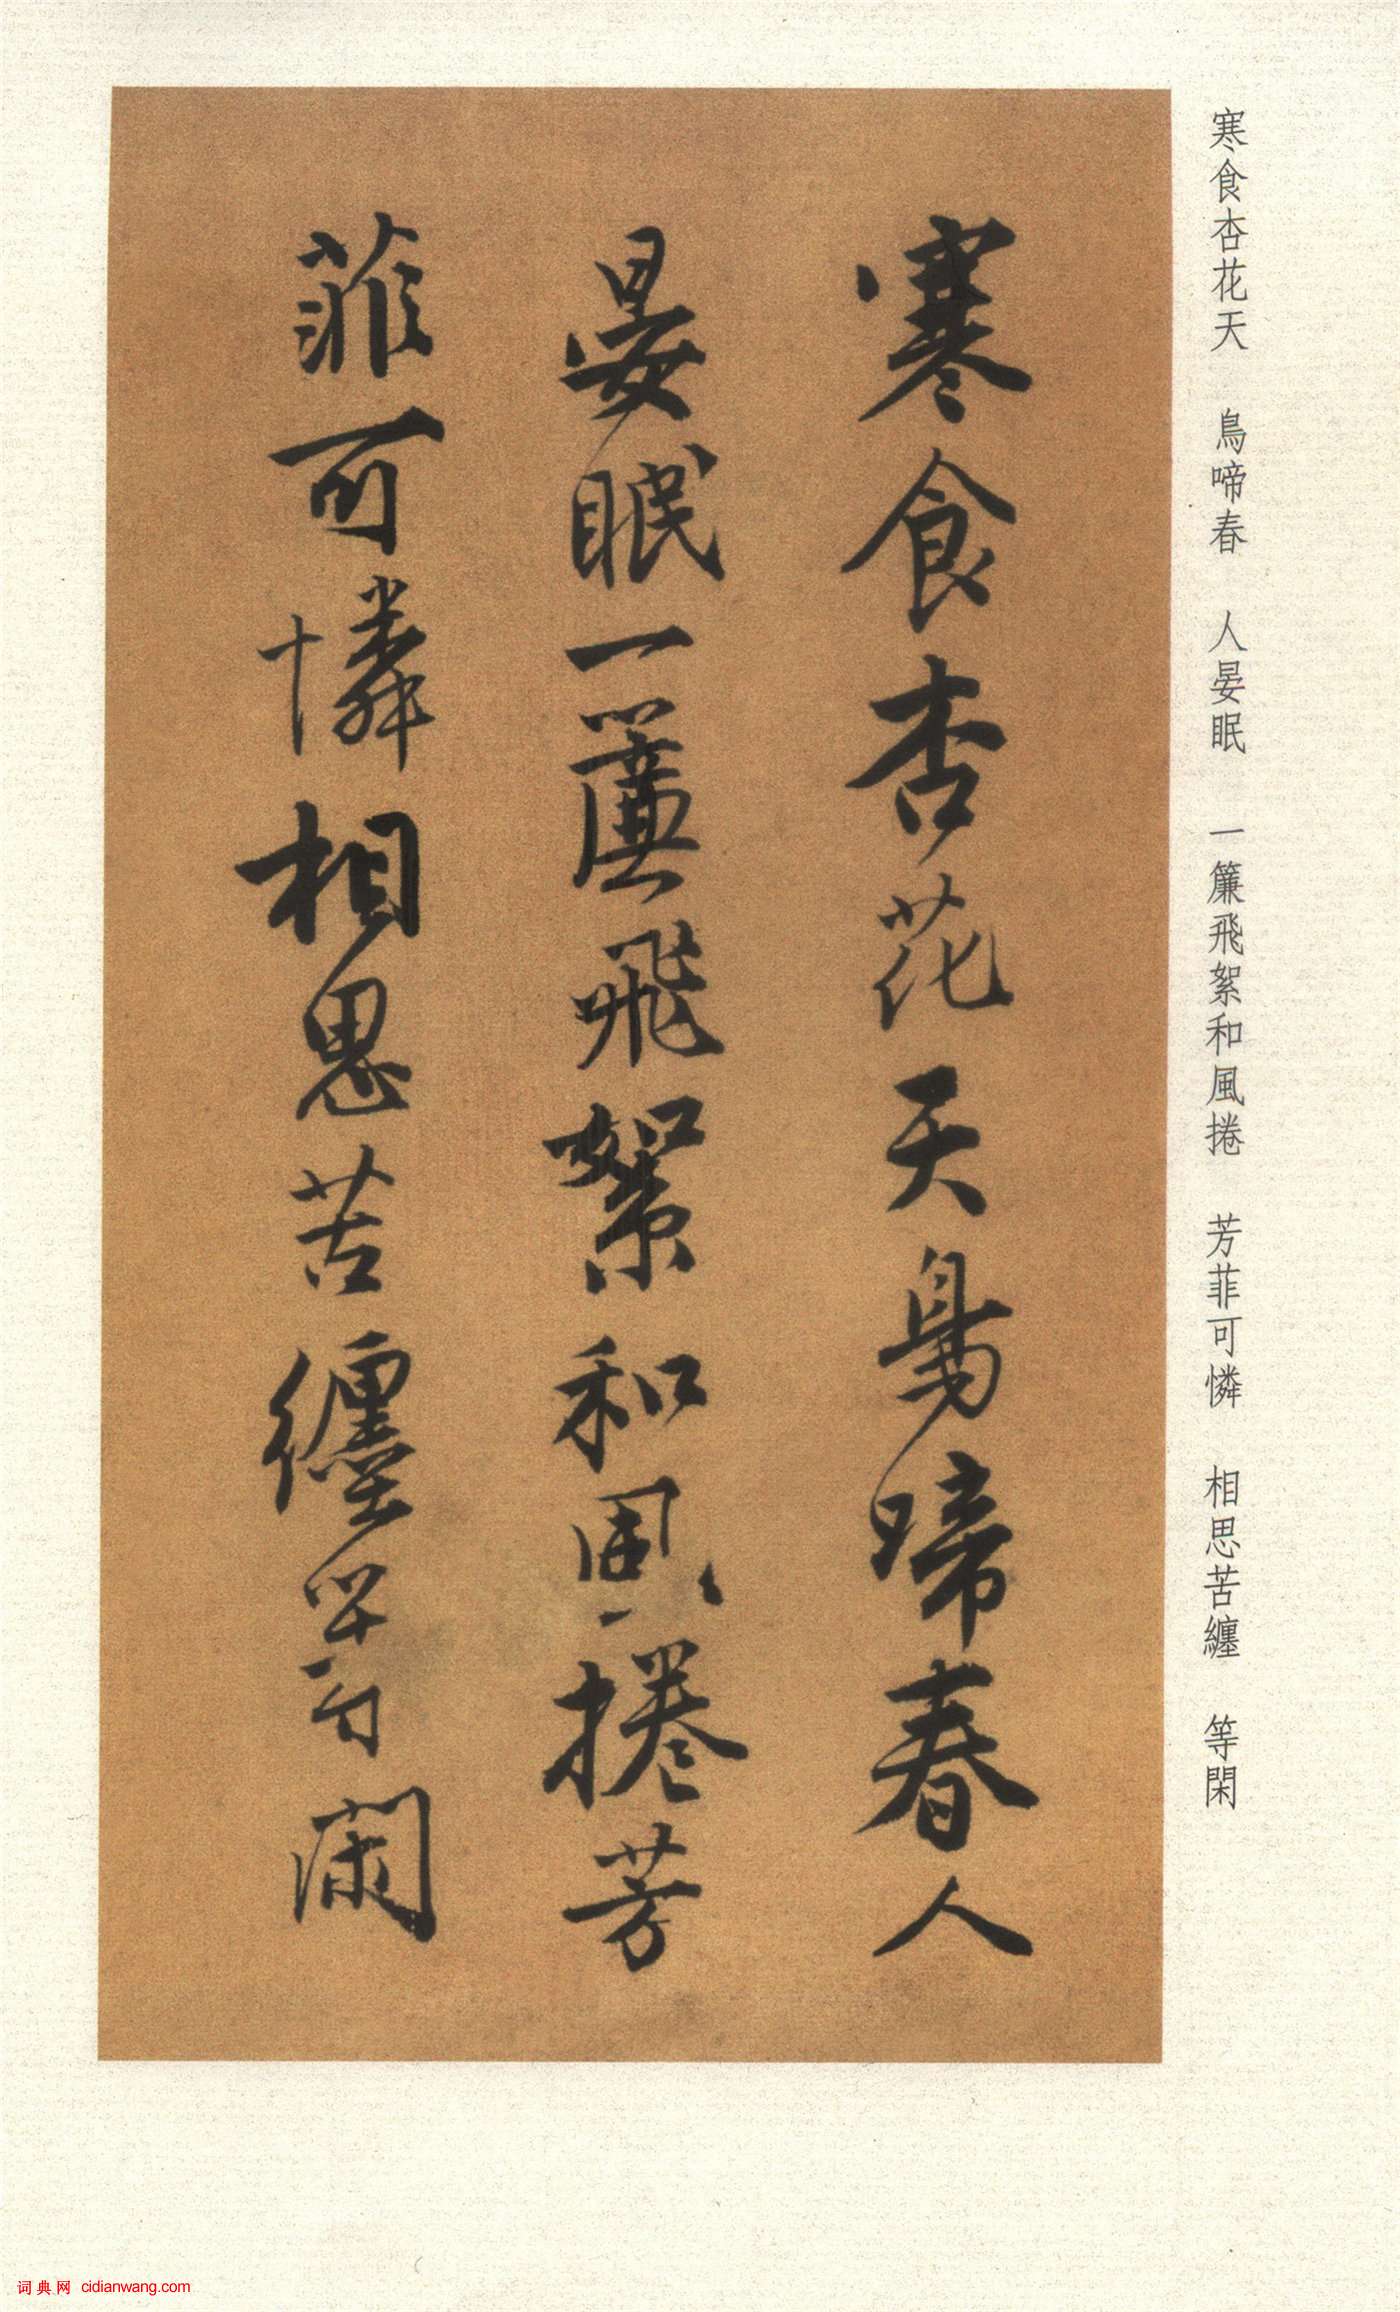 寒食杏花天　鳥啼春　人晏眠　一簾飛絮和風捲　芳菲可憐　相思苦纏　等閑
寒食杏花天鳥啼春人
晏眠一簾飛絮和風捲芳
菲可憐相思苦纏等閑
词典网 cidianwang.com